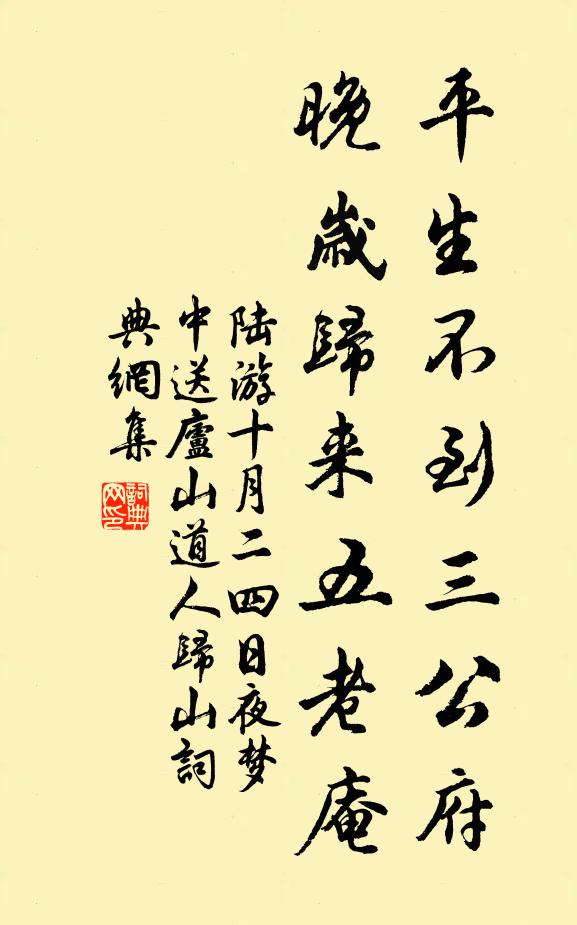 平生不到三公府
晚歲歸来五老庵
陆游十月二四日夜梦
中送廬山道人歸山詞
典網集
詞典网印